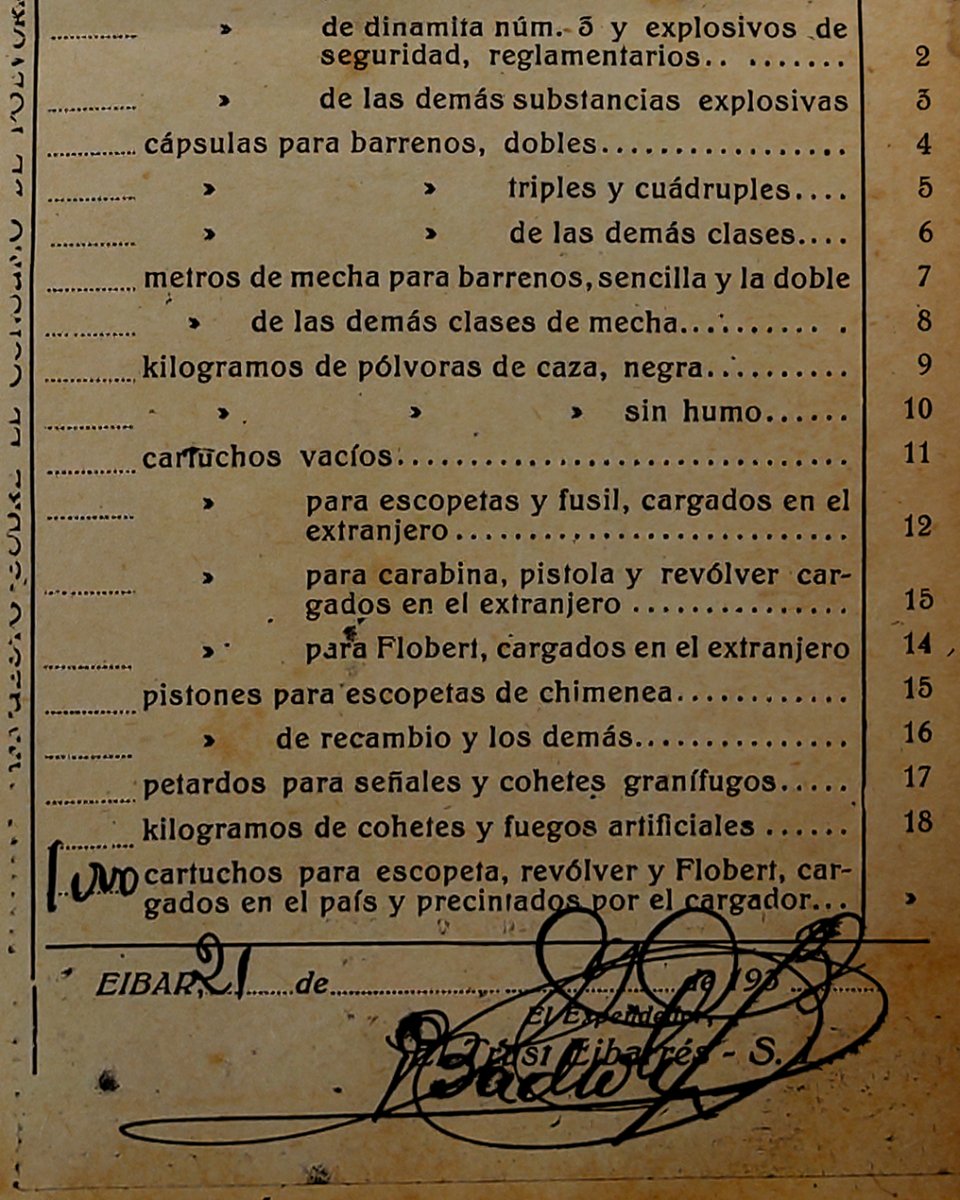 » de dinamita núm. 3 y explosivos de
seguridad, reglamentarios.. ....... 2
» de las demás substancias explosivas 3
cápsulas para barrenos, dobles................. 4
» » triples y cuádruples.... 5
» » de las demás clases.... 6
metros de mecha para barrenos, sencilla y la doble 7
» de las demás clases de mecha.......... . 8
kilogramos de pólvoras de caza, negra.......... 9
» » » sin humo...... 10
cartuchos vacíos............................... 11
» para escopetas y fusil, cargados en el
extranjero........................... 12
» para carabina, pistola y revólver car-
gados en el extranjero ............... 13
» para Flobert, cargados en el extranjero 14
pistones para escopetas de chimenea............ 15
» de recambio y los demás............... 16
petardos para señales y cohetes granífugos..... 17
kilogramos de cohetes y fuegos artificiales ...... 18
cartuchos para escopeta, revólver y Flobert, car-
gados en el país y precintados por el cargador... »
EIBAR, 21 de de 193
El Expendedor,
Trust Eibarrés - S.